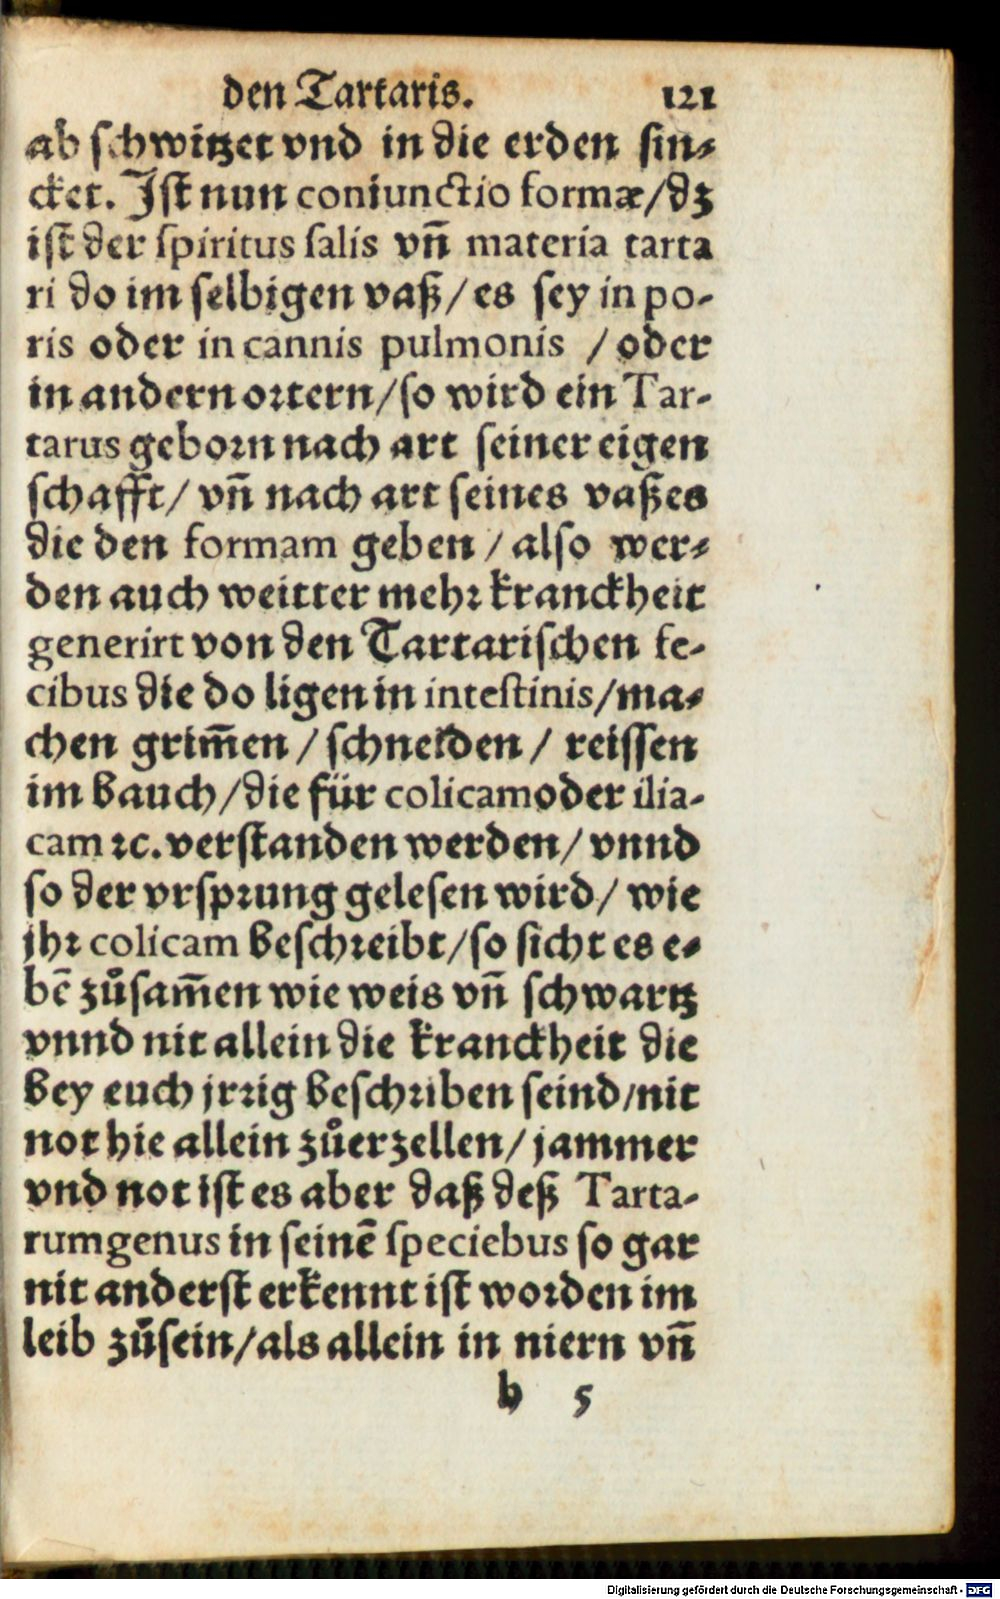 den Tartaris. 121
ab schwitzet vnd in die erden sin⸗
cket. Ist nun coniunctio formæ/dz
ist der spiritus salis vñ materia tarta
ri do im selbigen vaß/es sey in po-
ris oder in cannis pulmonis /oder
in andern ortern/so wird ein Tar-
tarus geborn nach art seiner eigen
schafft/ vñ nach art seines vaßes
die den formam geben / also wer⸗
den auch weitter mehr kranckheit
generirt von den Tartarischen fe-
cibus die do ligen in intestinis/ma⸗
chen grim̃en / schneiden / reissen
im bauch/die für colicam oder ilia-
cam ꝛc. verstanden werden/ vnnd
so der vrsprung gelesen wird/ wie
jhr colicam beschreibt/so sicht es e⸗
bē zůsam̃en wie weis vñ schwartz
vnnd nit allein die kranckheit die
bey euch jrrig beschriben seind/nit
not hie allein zůerzellen/jammer
vnd not ist es aber daß deß Tarta-
rum genus in seinē speciebus so gar
nit anderst erkennt ist worden im
leib zůsein/als allein in niern vñ
h 5
Digitalisierung gefördert durch die Deutsche Forschungsgemeinschaft - DFG